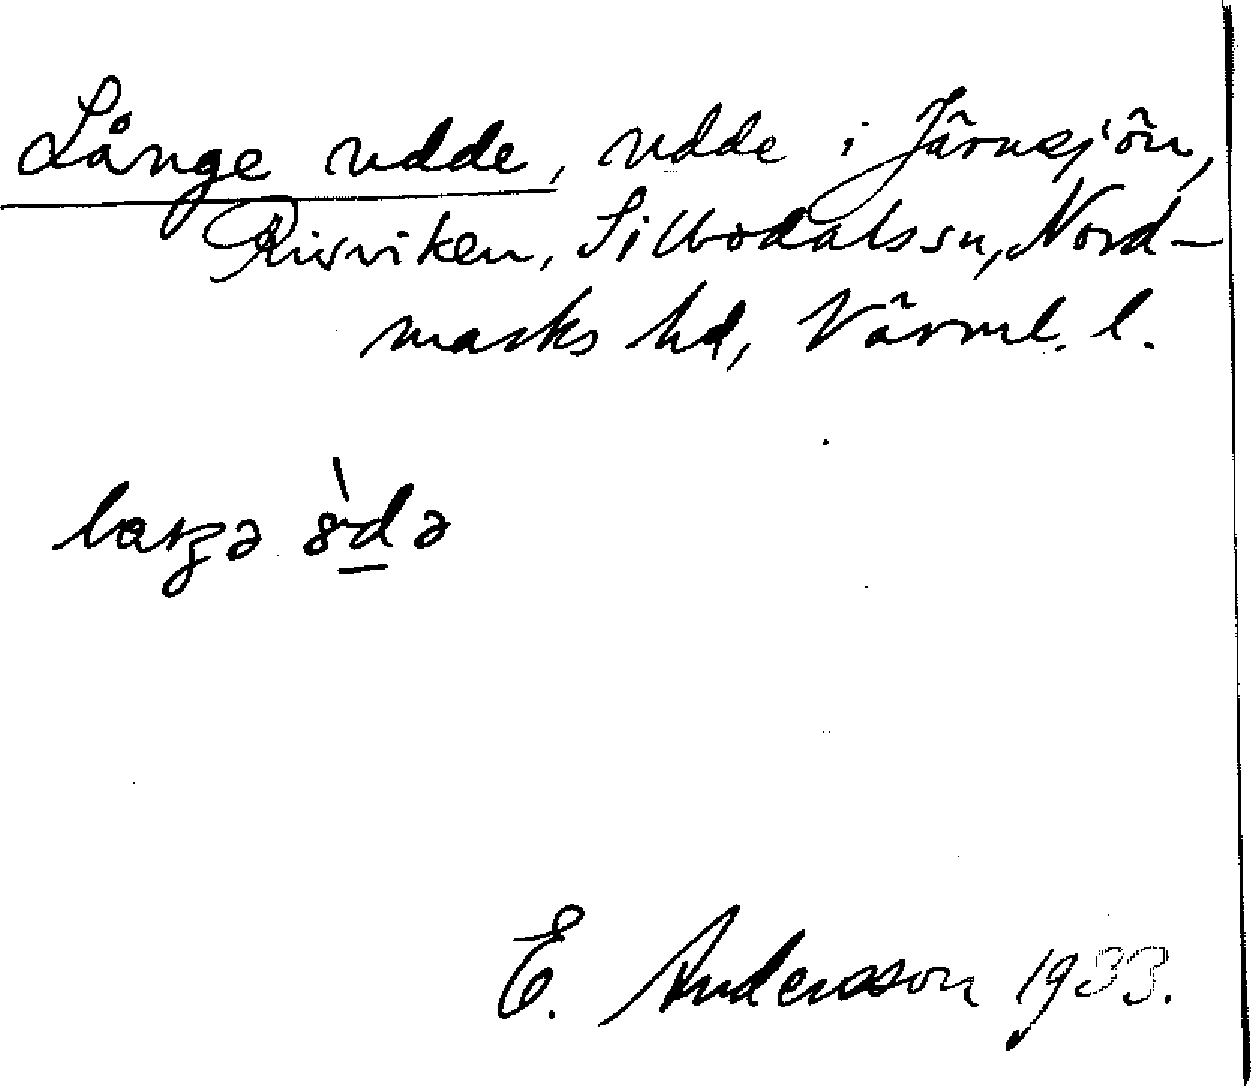 Långe udde, udde i Järnsjön,
Risviken, Sillbodals sn, Nord-
marks hd, Värml. l.
E. Andersson 1933.